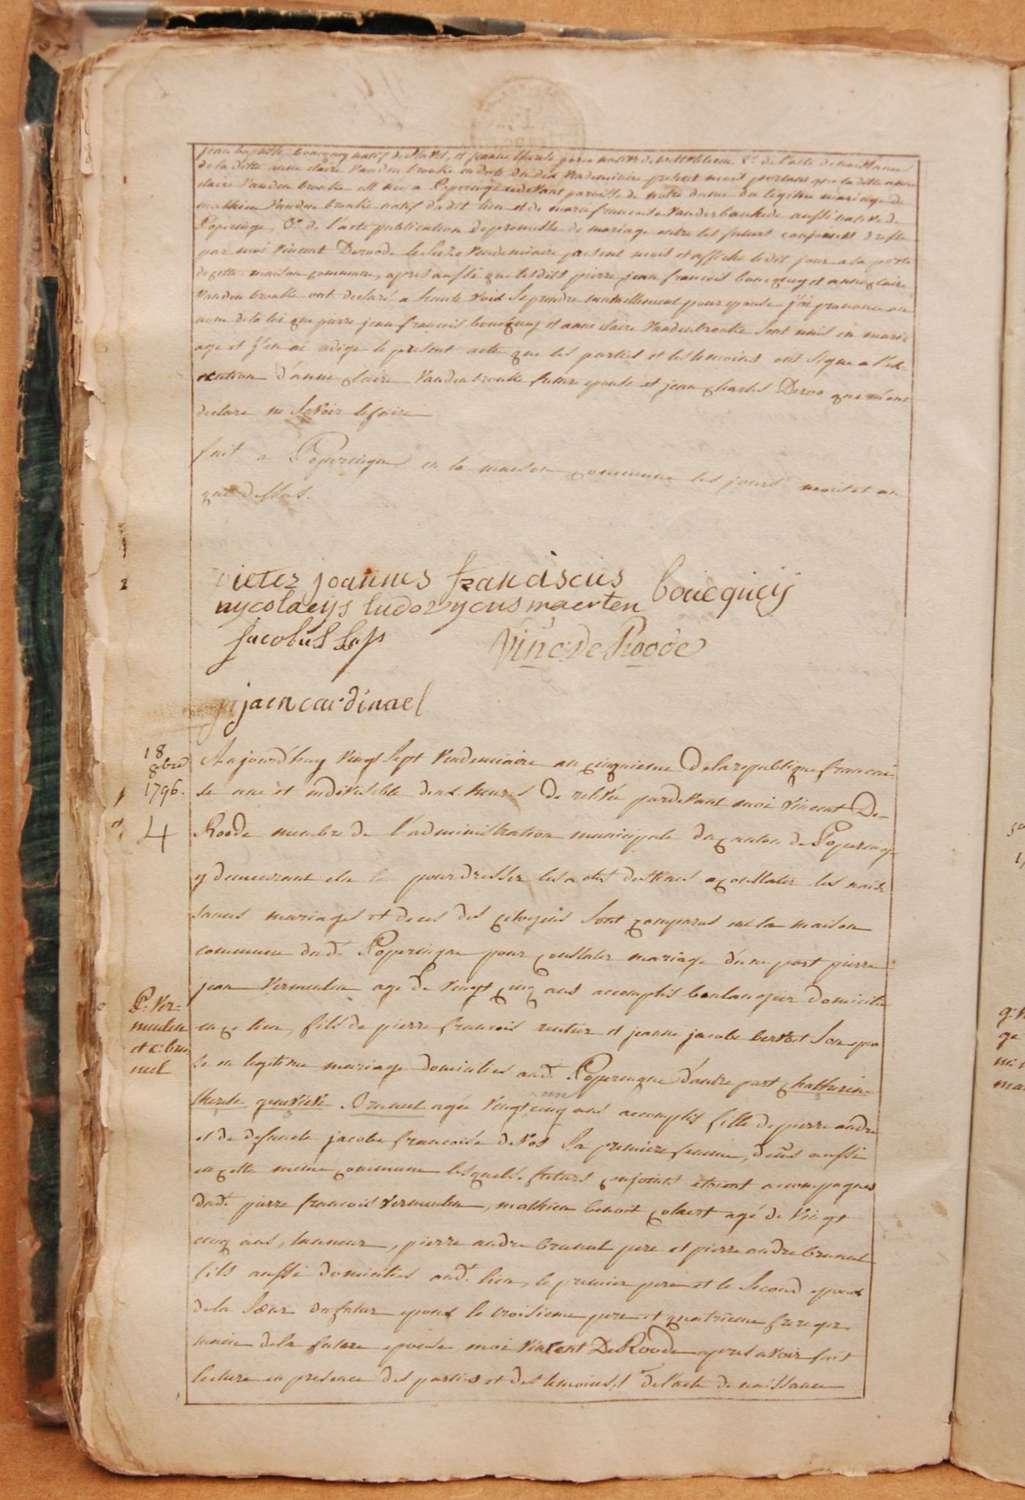 de la ditte anne claire Vanden broucke en date du dix Vendemiaire present mois portant que la ditte anne
claire Vanden broucke est née a Poperinge cidevant paroisse de notre dame du legitime mariage de
mathieu Vanden broucke natif dudit lieu et de marie francoise Vanderbeucke aussi native de
Poperinge, de l'acte publication de promesse de mariage entre les futurs conjoints dressé
par moi Vincent Deroode le Vendemiaire present mois et affiché ledit jour a la porte
de cette maison commune, apres aussi que lesdits pierre jean francois boucquey et anne claire
Vanden broucke ont declaré a haute voix se prendre mutuellement pour epoux j'ai prononcé au
nom de la loi que pierre jean francois boucquey et anne claire Vandenbroucke sont unis en mari-
age et j'en ai redigé le present acte que les parties et les temoins ont signé a l'ex-
ception d'anne claire Vandenbroucke future epouse et jean charles Deroo qui m'ont
declaré ne savoir le faire
fait a Poperingue en la maison commune les jours mois et an
que dessus.
pieter joannes franciscus boucquey
nycolaeys ludovycus maerten
Jacobus
Vinc: De Roode
jaen cardinael
18
8bre
1796.
4
Aujourd'huy vingt sept Vendemiaire an cinquieme de la republique francai-
se une et indivisible deux heures de relevée pardevant moi Vincent De-
Roode membre de l'administration municipale du canton de Poperinge
y demeurant elu pour dresser les actes destinés a constater les nais-
sances mariages et deces des citoyens sont comparus en la maison
commune dud. Poperingue pour constater mariage d'une part pierre
jean Vermeulen agé de vingt cinq ans accomplis boulangier domicilié
P. Ver-
meulen
et c: bru
neel
en ce lieu, fils de pierre francois rentier et jeanne jacobe bertet son epou
se en legitime mariage domiciliés aud. Poperingue d'autre part Chatherine
therese genevieve Bruneel agée vingt cinq ans accomplis fille de pierre andre
et de defuncte jacobe francoise De Vos sa premiere femme, aussi
en cette même commune lesquels futurs conjoints étoient accompagnés
dud. pierre francois Vermeulen, mathieu benoit colaert agé de vingt
cinq ans, tanneur, pierre andre bruneel pere et pierre andre bruneel
fils aussi domiciliés aud. lieu, le premier pere et le second epoux
de la soeur du futur epoux le troisieme pere et quatrieme frere ger-
main de la future epouse moi Vincent De Roode apres avoir fait
lecture en presence des parties et des temoins, 1° de l'acte de naissance